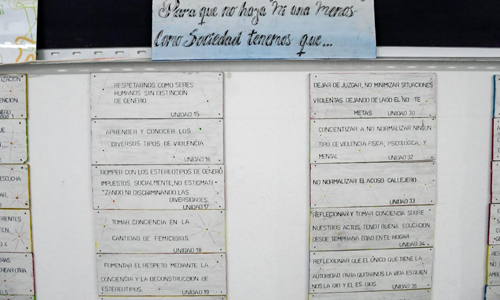 Para que no haya Ni una Menos
Como Sociedad tenemos que...
RESPETARNOS COMO SERES
HUMANOS SIN DISTINCION
DE GENERO
UNIDAD 15
APRENDER Y CONOCER LOS
DIVERSOS TIPOS DE VIOLENCIA
UNIDAD 16
ROMPER CON LOS ESTEREOTIPOS DE GENERO
IMPUESTOS SOCIALMENTE, NO ESTIGMATI
ZANDO NI DISCRIMINANDO LAS
DIVERSIDADES.
UNIDAD 17
TOMAR CONCIENCIA EN LA
CANTIDAD DE FEMICIDIOS.
UNIDAD 18
FOMENTAR EL RESPETO MEDIANTE LA
CONCIENCIA Y LA DECONSTRUCCION DE
ESTEREOTIPOS.
UNIDAD 19
DEJAR DE JUZGAR, NO MINIMIZAR SITUACIONES
VIOLENTAS DEJANDO DE LADO EL NO TE
METAS
UNIDAD 30
CONCIENTIZAR A NO NORMALIZAR NINGUN
TIPO DE VIOLENCIA FISICA, PSICOLOGICA, Y
MENTAL
UNIDAD 32
NO NORMALIZAR EL ACOSO CALLEJERO
UNIDAD 33
REFLEXIONAR Y TOMAR CONCIENCIA SOBRE
NUESTROS ACTOS, TENER BUENA EDUCACION
DESDE TEMPRANA EDAD EN EL HOGAR
UNIDAD 34
REFLEXIONAR QUE EL UNICO QUE TIENE LA
AUTORIDAD PARA QUITARNOS LA VIDA ES QUIEN
NOS LA DIO Y EL ES DIOS
UNIDAD 35